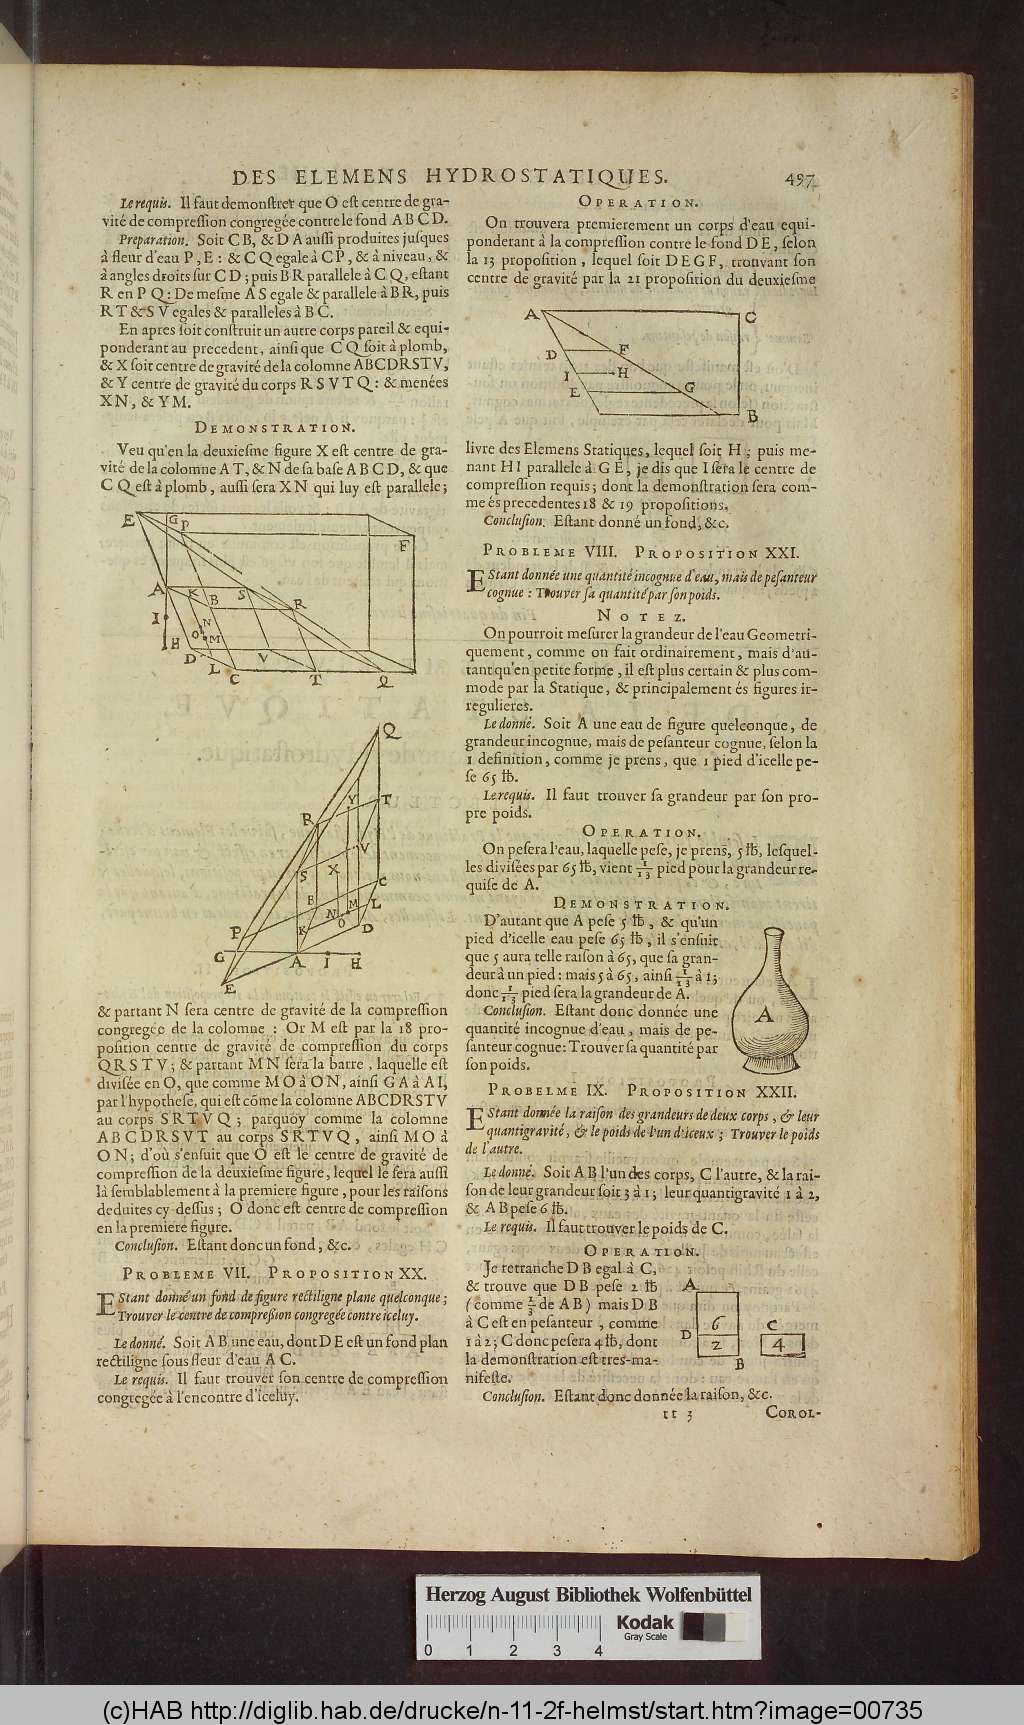 DES ELEMENS HYDROSTATIQUES. 497
Le requis. Il faut demonſtrer que O eſt centre de gra-
vité de compreſſion congregée contre le fond A B C D.
Preparation. Soit C B, & D A auſſi produites juſques
à fleur d'eau P, E : & C Q egale à C P, & à niveau, &
à angles droits ſur C D ; puis B R parallele à C Q, eſtant
R en P Q : De meſme A S egale & parallele à B R, puis
R T & S V egales & paralleles à B C.
En apres ſoit conſtruit un autre corps pareil & equi-
ponderant au precedent, ainſi que C Q ſoit à plomb,
& X ſoit centre de gravité de la colomne ABCDRSTV,
& Y centre de gravité du corps R S V T Q : & menées
X N, & Y M.
DEMONSTRATION.
Veu qu'en la deuxieſme figure X eſt centre de gra-
vité de la colomne A T, & N de ſa baſe A B C D, & que
C Q eſt à plomb, auſſi ſera X N qui luy eſt parallele ;
E G P F
A K B S R
I N O M
H D L C V T Q
Q
Y T
R
V
S X
C
B
P K N M L
O D
G A I H
E
& partant N ſera centre de gravité de la compreſſion
congregée de la colomne : Or M eſt par la 18 pro-
poſition centre de gravité de compreſſion du corps
Q R S T V ; & partant M N ſera la barre, laquelle eſt
diviſée en O, que comme M O à O N, ainſi G A à A I,
par l'hypotheſe, qui eſt cõme la colomne ABCDRSTV
au corps S R T V Q ; parquoy comme la colomne
A B C D R S V T au corps S R T V Q, ainſi M O à
O N ; d'où s'enſuit que O eſt le centre de gravité de
compreſſion de la deuxieſme figure, lequel le ſera auſſi
là ſemblablement à la premiere figure, pour les raiſons
deduites cy deſſus ; O donc eſt centre de compreſſion
en la premiere figure.
Concluſion. Eſtant donc un fond, &c.
PROBLEME VII. PROPOSITION XX.
EStant donné un fond de figure rectiligne plane quelconque ;
Trouver le centre de compreſsion congregée contre iceluy.
Le donné. Soit A B une eau, dont D E eſt un fond plan
rectiligne ſous fleur d'eau A C.
Le requis. Il faut trouver ſon centre de compreſſion
congregée à l'encontre d'iceluy.
OPERATION.
On trouvera premierement un corps d'eau equi-
ponderant à la compreſſion contre le fond D E, ſelon
la 13 propoſition, lequel ſoit D E G F, trouvant ſon
centre de gravité par la 21 propoſition du deuxieſme
A C
D F
I H
E G
B
livre des Elemens Statiques, lequel ſoit H ; puis me-
nant H I parallele à G E, je dis que I ſera le centre de
compreſſion requis ; dont la demonſtration ſera com-
me és precedentes 18 & 19 propoſitions.
Concluſion. Eſtant donné un fond, &c.
PROBLEME VIII. PROPOSITION XXI.
EStant donnée une quantité incognue d'eau, mais de peſanteur
cognue : Trouver ſa quantité par ſon poids.
NOTEZ.
On pourroit meſurer la grandeur de l'eau Geometri-
quement, comme on fait ordinairement, mais d'au-
tant qu'en petite forme, il eſt plus certain & plus com-
mode par la Statique, & principalement és figures ir-
regulieres.
Le donné. Soit A une eau de figure quelconque, de
grandeur incognue, mais de peſanteur cognue, ſelon la
1 definition, comme je prens, que 1 pied d'icelle pe-
ſe 65 ℔.
Le requis. Il faut trouver ſa grandeur par ſon pro-
pre poids.
OPERATION.
On peſera l'eau, laquelle peſe, je prens, 5 ℔, leſquel-
les diviſées par 65 ℔, vient 1/13 pied pour la grandeur re-
quiſe de A.
DEMONSTRATION.
D'autant que A peſe 5 ℔, & qu'un
pied d'icelle eau peſe 65 ℔, il s'enſuit
que 5 aura telle raiſon à 65, que ſa gran-
deur à un pied : mais 5 à 65, ainſi 1/13 à 1 ;
donc 1/13 pied ſera la grandeur de A.
Concluſion. Eſtant donc donnée une
quantité incognue d'eau, mais de pe-
ſanteur cognue : Trouver ſa quantité par
ſon poids.
A
PROBELME IX. PROPOSITION XXII.
EStant donnée la raiſon des grandeurs de deux corps, & leur
quantigravité, & le poids de l'un d'iceux ; Trouver le poids
de l'autre.
Le donné. Soit A B l'un des corps, C l'autre, & la rai-
ſon de leur grandeur ſoit 3 à 1 ; leur quantigravité 1 à 2,
& A B peſe 6 ℔.
Le requis. Il faut trouver le poids de C.
OPERATION.
Je retranche D B egal à C,
& trouve que D B peſe 2 ℔
(comme 1/3 de A B) mais D B
à C eſt en peſanteur, comme
1 à 2 ; C donc peſera 4 ℔, dont
la demonſtration eſt tres-ma-
nifeſte.
A
6 C
D 2 4
B
Concluſion. Eſtant donc donnée la raiſon, &c.
tt 3 COROL-
Herzog August Bibliothek Wolfenbüttel
Kodak
Gray Scale
0 1 2 3 4
(c)HAB http://diglib.hab.de/drucke/n-11-2f-helmst/start.htm?image=00735